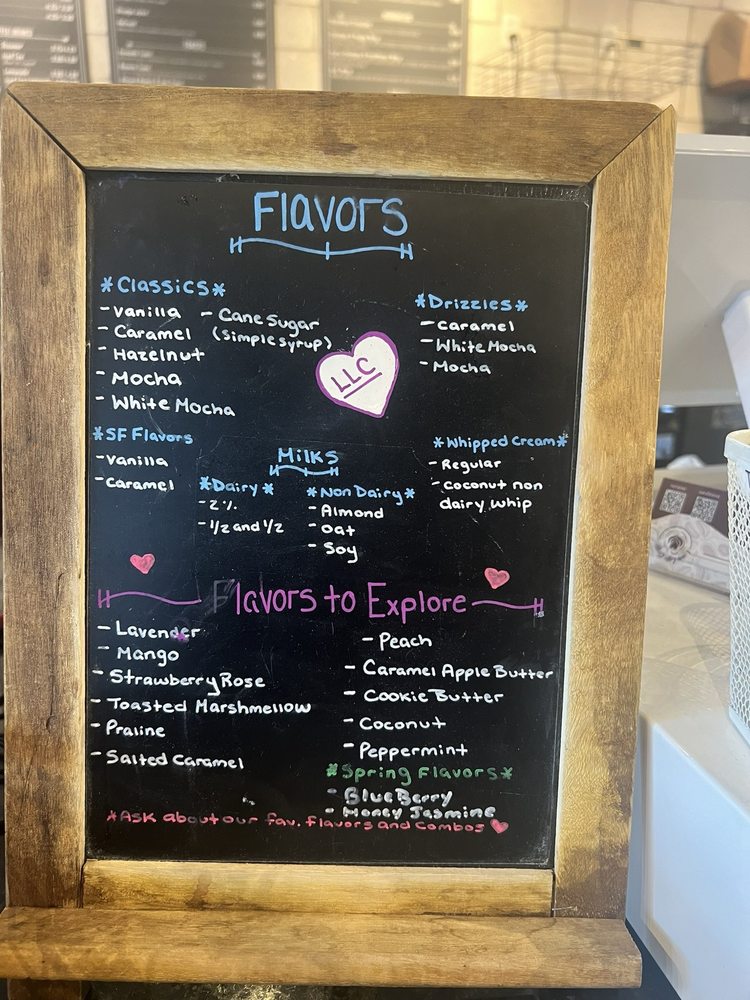 Flavors
*Classics*
- Vanilla
- Caramel
- Hazelnut
- Mocha
- White Mocha
- Cane Sugar
(simple syrup)
LLC
*Drizzles*
- Caramel
- White Mocha
- Mocha
*SF Flavors
- Vanilla
- Caramel
Milks
*Dairy*
- 2%
- 1/2 and 1/2
*Non Dairy*
- Almond
- Oat
- Soy
*Whipped Cream*
- Regular
- Coconut non
dairy whip
Flavors to Explore
- Lavender
- Mango
- Strawberry Rose
- Toasted Marshmellow
- Praline
- Salted Caramel
- Peach
- Caramel Apple Butter
- Cookie Butter
- Coconut
- Peppermint
*Spring Flavors*
- BlueBerry
- Honey Jasmine
*Ask about our fav. flavors and combos